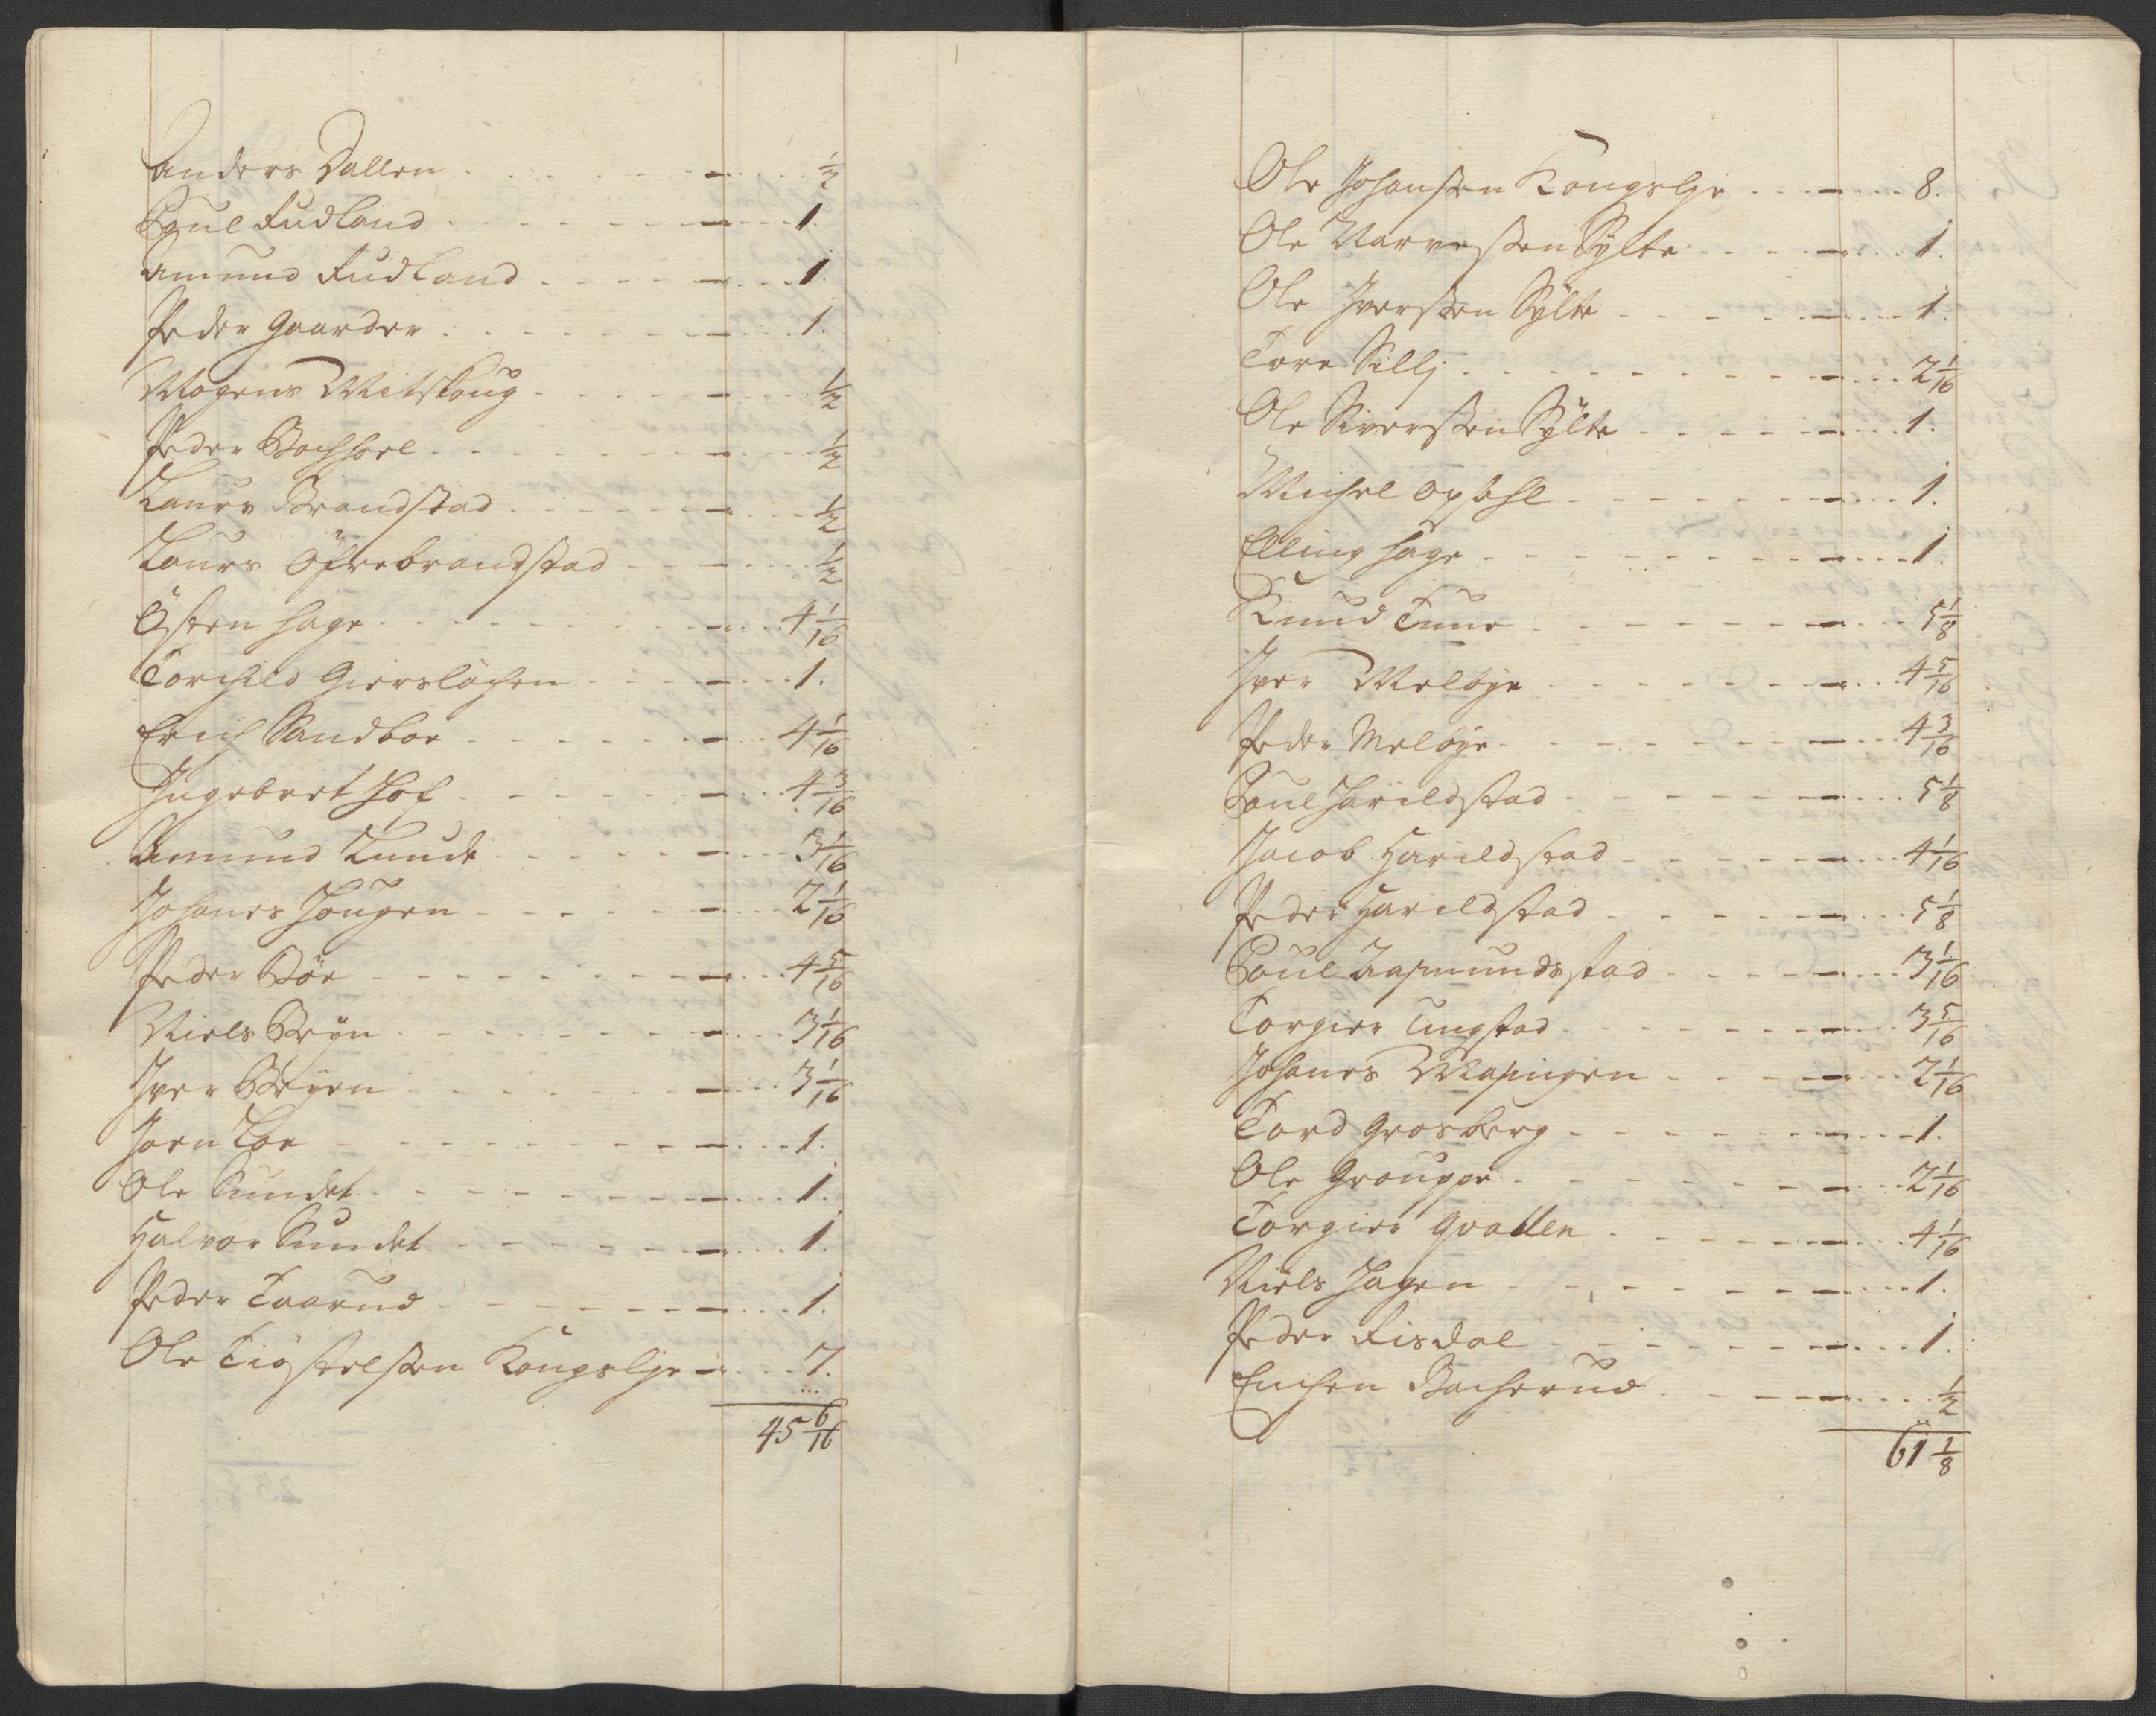 Anders Dallen - ½
Poul Rudland - 1.
Amund Rudland - 1.
Peder Gaarder - 1.
Mogens Mitskoug - ½
Peder Bochhoel - ½
Laurs Brandstad - ½
Laurs Öfrebrandstad - ½
Östen Hage - 4 1/16
Torchild Gierslöchen - 1.
Erich Sandboe - 4 1/16
Ingebret Hof - 4 3/16
Amund Lunde - 3 1/16
Johanes Hougen - 2 1/16
Peder Böe - 4 5/16
Niels Bryn - 3 1/16
Iver Bryen - 3 1/16
Joen Loe - 1.
Ole Sundet - 1.
Halvor Sundet - 1.
Peder Taarud - 1.
Ole Tiöstelssen Kongelje - 7.
45 6/16
Ole Johanssen Kongslje - 8.
Ole Narvessen Sylte - 1.
Ole Iverssen Sylte - 1.
Tore Sillj - 2 1/16
Ole Siverssen Sylte - 1.
Michel Opsehl - 1.
Elling Hage - 1.
Knud Tune - 5 1/8
Iver Melbye - 4 5/16
Peder Melbye - 4 3/16
Poul Harildstad - 5 1/8
Jacob Harildstad - 4 1/16
Peder Harildstad - 5 1/8
Poul Aasmundsstad - 3 1/16
Torgier Tingstad - 3 5/16
Johanes Masingen - 2 1/16
Tord Grosberg - 1.
Ole Grouppe - 2 1/16
Torgier Qvallen - 4 1/16
Niels Hagen - 1.
Peder Risdal - 1.
Enchen Bacherud - ½
61 1/8